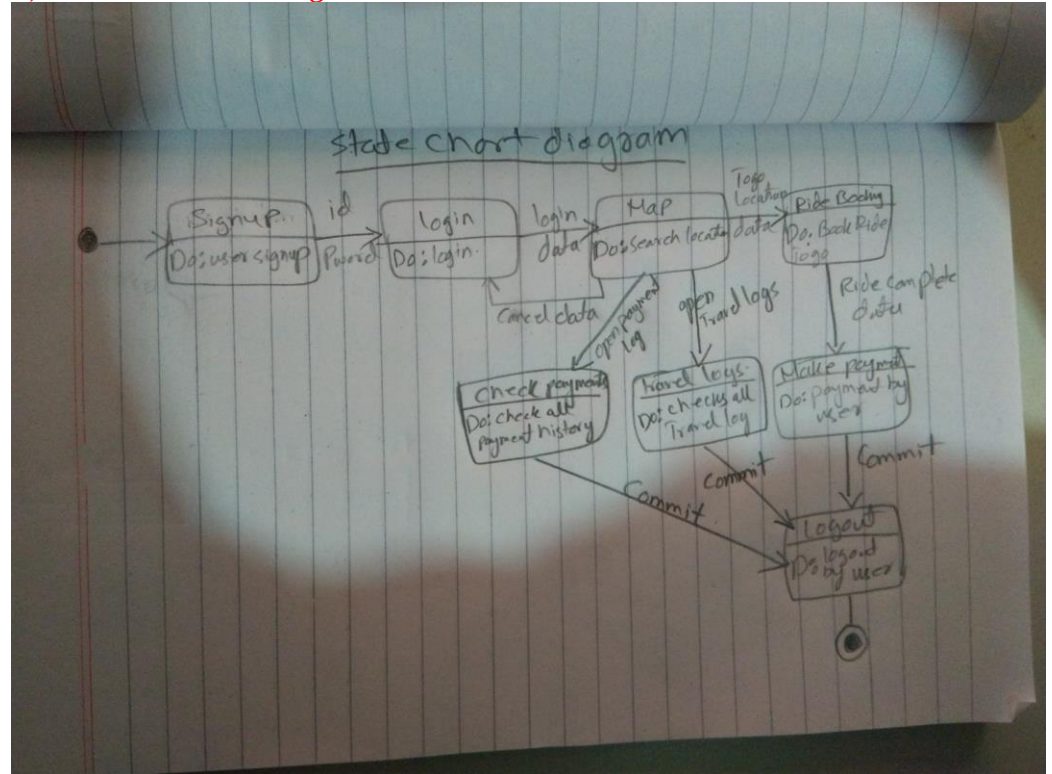 state chart diagram
Signup
Do: user signup
id
Pword
login
Do: login.
login
data
Map
Do: Search locatn
Togo
Location
data
Ride Booking
Do: Book Ride
Togo
Cancel data
open payment
log
open
Travel logs
Ride complete
data
Check payments
Do: check all
payment history
Travel logs.
Do: checks all
Travel log
Make payment
Do: payment by
user
Commit
Commit
Commit
Logout
Do: logout
by user